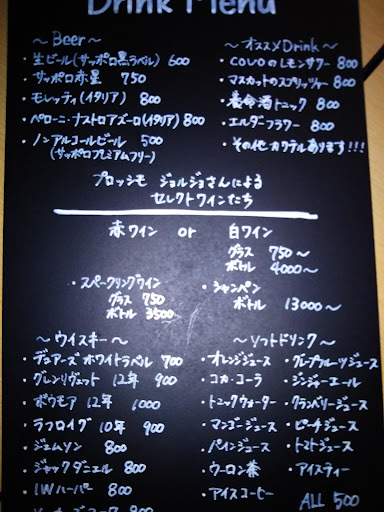 Drink Menu
～Beer～
・生ビール(サッポロ黒ラベル) 600
・サッポロ赤星 750
・モレッティ(イタリア) 800
・ペローニ・ナストロアズーロ(イタリア) 800
・ノンアルコールビール 500
(サッポロプレミアムフリー)
～オススメDrink～
・COVOのレモンサワー 800
・マスカットのスプリッツァー 800
・養命酒トニック 800
・エルダーフラワー 800
・その他カクテルあります!!!
プロッシモ ジョルジョさんによる
セレクトワインたち
赤ワイン or 白ワイン
グラス 750～
ボトル 4000～
・スパークリングワイン
グラス 750
ボトル 3500
・シャンパン
ボトル 13000～
～ウイスキー～
・デュアーズ ホワイトラベル 700
・グレンリヴェット 12年 900
・ボウモア 12年 1000
・ラフロイグ 10年 900
・ジェムソン 800
・ジャックダニエル 800
・I.W.ハーパー 800
～ソフトドリンク～
・オレンジジュース ・グレープフルーツジュース
・コカ・コーラ ・ジンジャーエール
・トニックウォーター ・クランベリージュース
・マンゴージュース ・ピーチジュース
・パインジュース ・トマトジュース
・ウーロン茶 ・アイスティー
・アイスコーヒー ALL 500